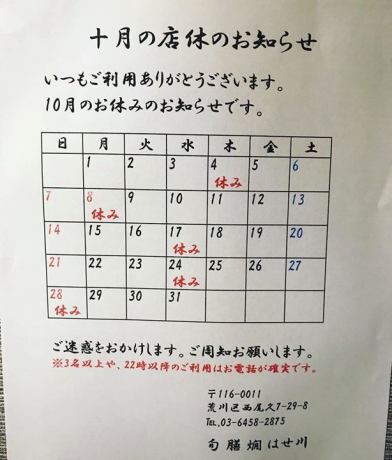 十月の店休のお知らせ
いつもご利用ありがとうございます。
10月のお休みのお知らせです。
日 月 火 水 木 金 土
1 2 3 4 5 6
休み
7 8 9 10 11 12 13
休み
14 15 16 17 18 19 20
休み
21 22 23 24 25 26 27
休み
28 29 30 31
休み
ご迷惑をおかけします。ご周知お願いします。
※3名以上や、22時以降のご利用はお電話が確実です。
〒116-0011
荒川区西尾久7-29-8
TEL.03-6458-2875
旬膳燗はせ川